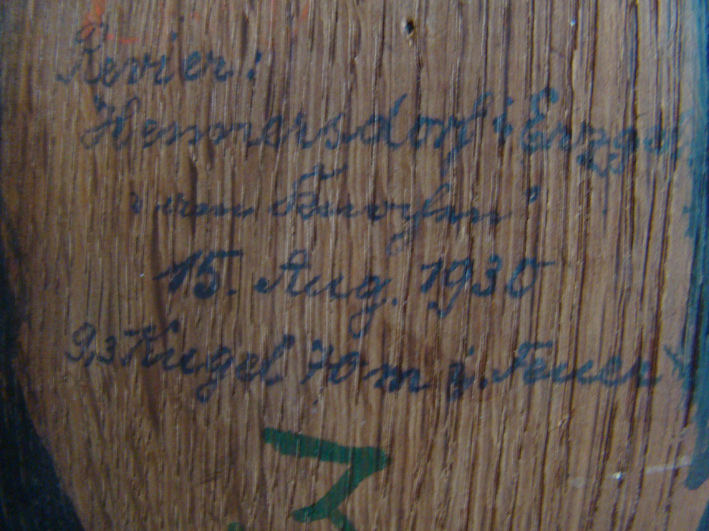 Revier:
Hennersdorf i. Erzgeb.
15. Aug. 1930
9,3 Kugel 70 m i. Feuer
3